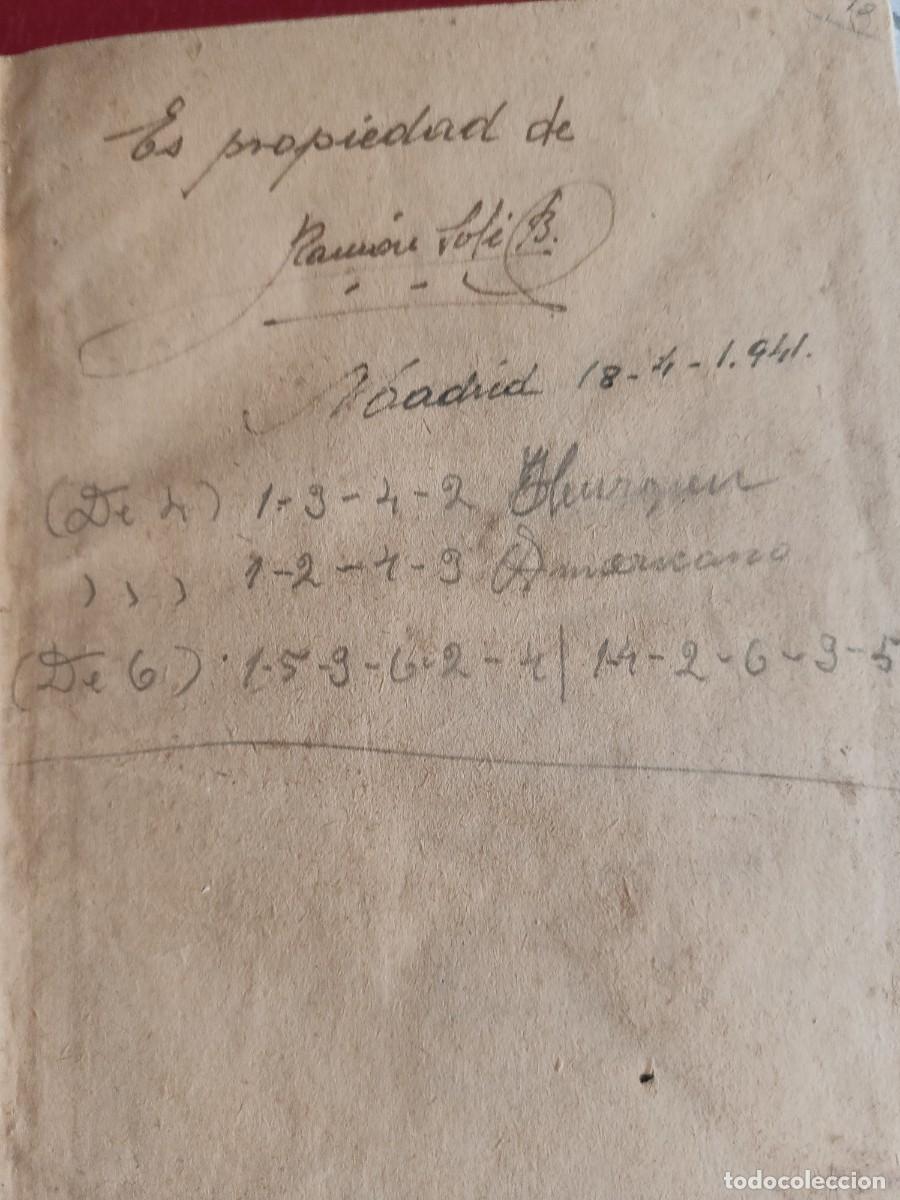 Es propiedad de
Ramón Solí B.
Madrid 18-4-1.941.
(De 4) 1-3-4-2
, , , 1-2-4-3 Americano
(De 6) 1-5-3-6-2-4 | 1-4-2-6-3-5
todocoleccion